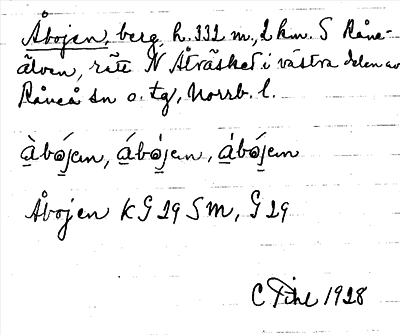 Åbojen, berg, h. 332 m., 2 km. S Råne-
älven, rätt N Åträsket i västra delen av
Råneå sn o. tg, Norrb. l.
Åbojen KG 29 SM, G 29
C Pihl 1928